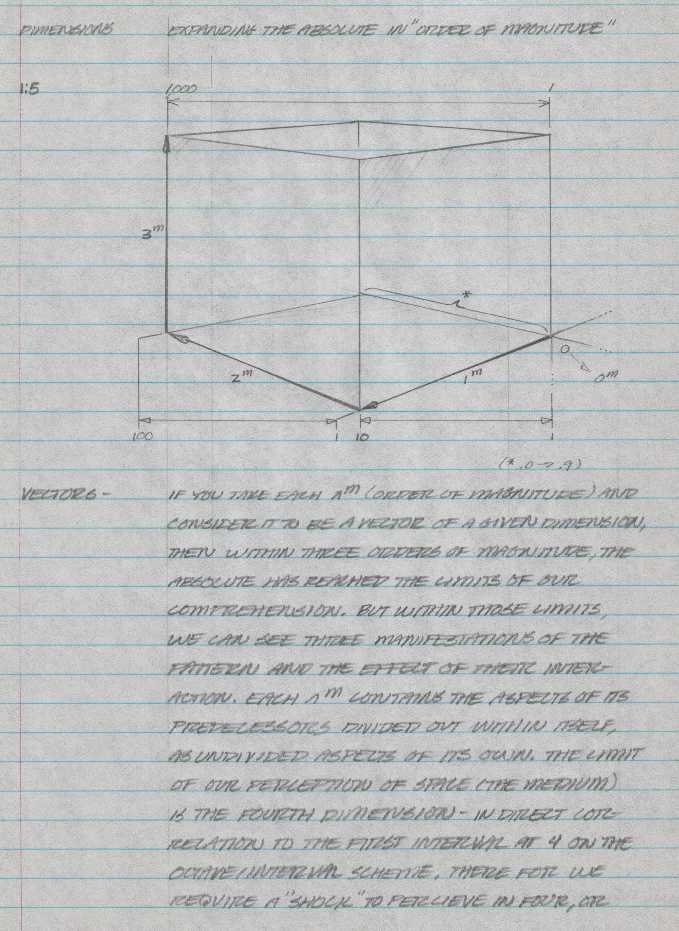 DIMENSIONS EXPANDING THE ABSOLUTE IN "ORDER OF MAGNITUDE"
1:5
1000 1
3ᵐ
*
0
2ᵐ 1ᵐ 0ᵐ
100 1 10 1
(* .0 → .9)
VECTORS - IF YOU TAKE EACH Λᵐ (ORDER OF MAGNITUDE) AND
CONSIDER IT TO BE A VECTOR OF A GIVEN DIMENSION,
THEN WITHIN THREE ORDERS OF MAGNITUDE, THE
ABSOLUTE HAS REACHED THE LIMITS OF OUR
COMPREHENSION. BUT WITHIN THOSE LIMITS,
WE CAN SEE THREE MANIFESTATIONS OF THE
PATTERN AND THE EFFECT OF THEIR INTER-
ACTION. EACH Λᵐ CONTAINS THE ASPECTS OF ITS
PREDECESSORS DIVIDED OUT WITHIN ITSELF,
AS UNDIVIDED ASPECTS OF ITS OWN. THE LIMIT
OF OUR PERCEPTION OF SPACE (THE MEDIUM)
IS THE FOURTH DIMENSION - IN DIRECT COR-
RELATION TO THE FIRST INTERVAL AT 4 ON THE
OCTAVE/INTERVAL SCHEME. THERE FOR WE
REQUIRE A "SHOCK" TO PERCIEVE IN FOUR, OR